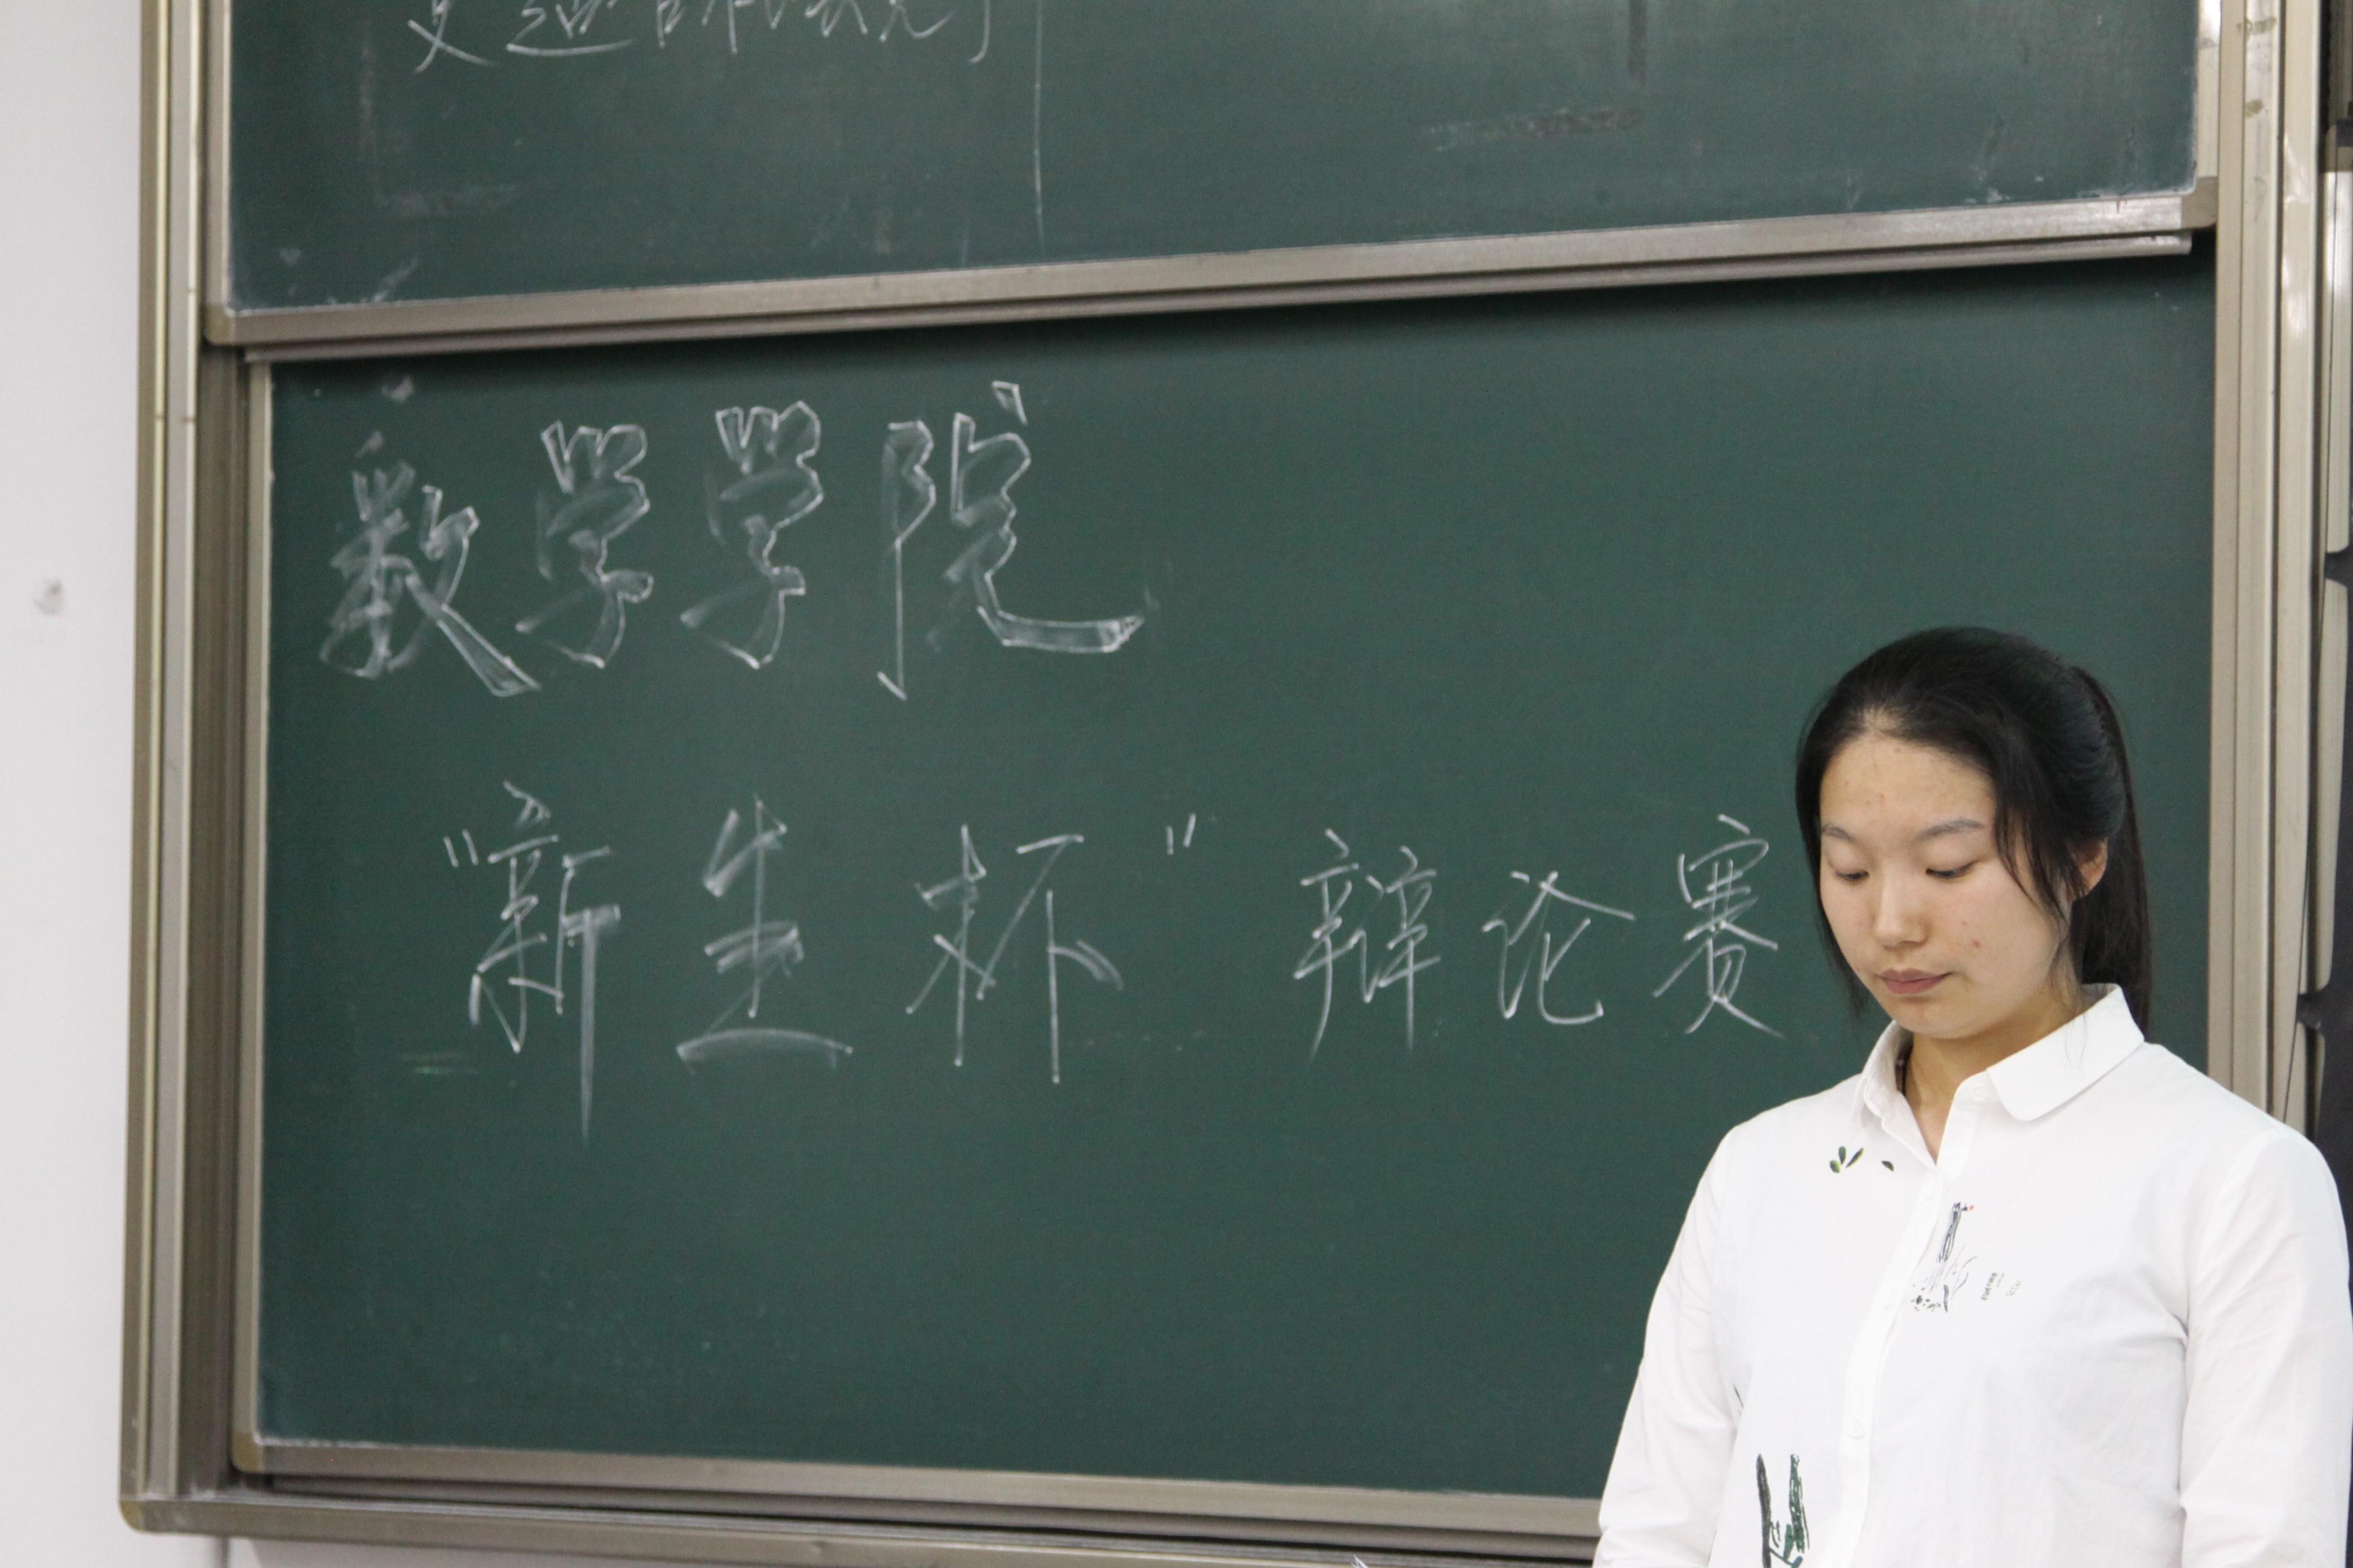 数学学院
"新生杯"辩论赛